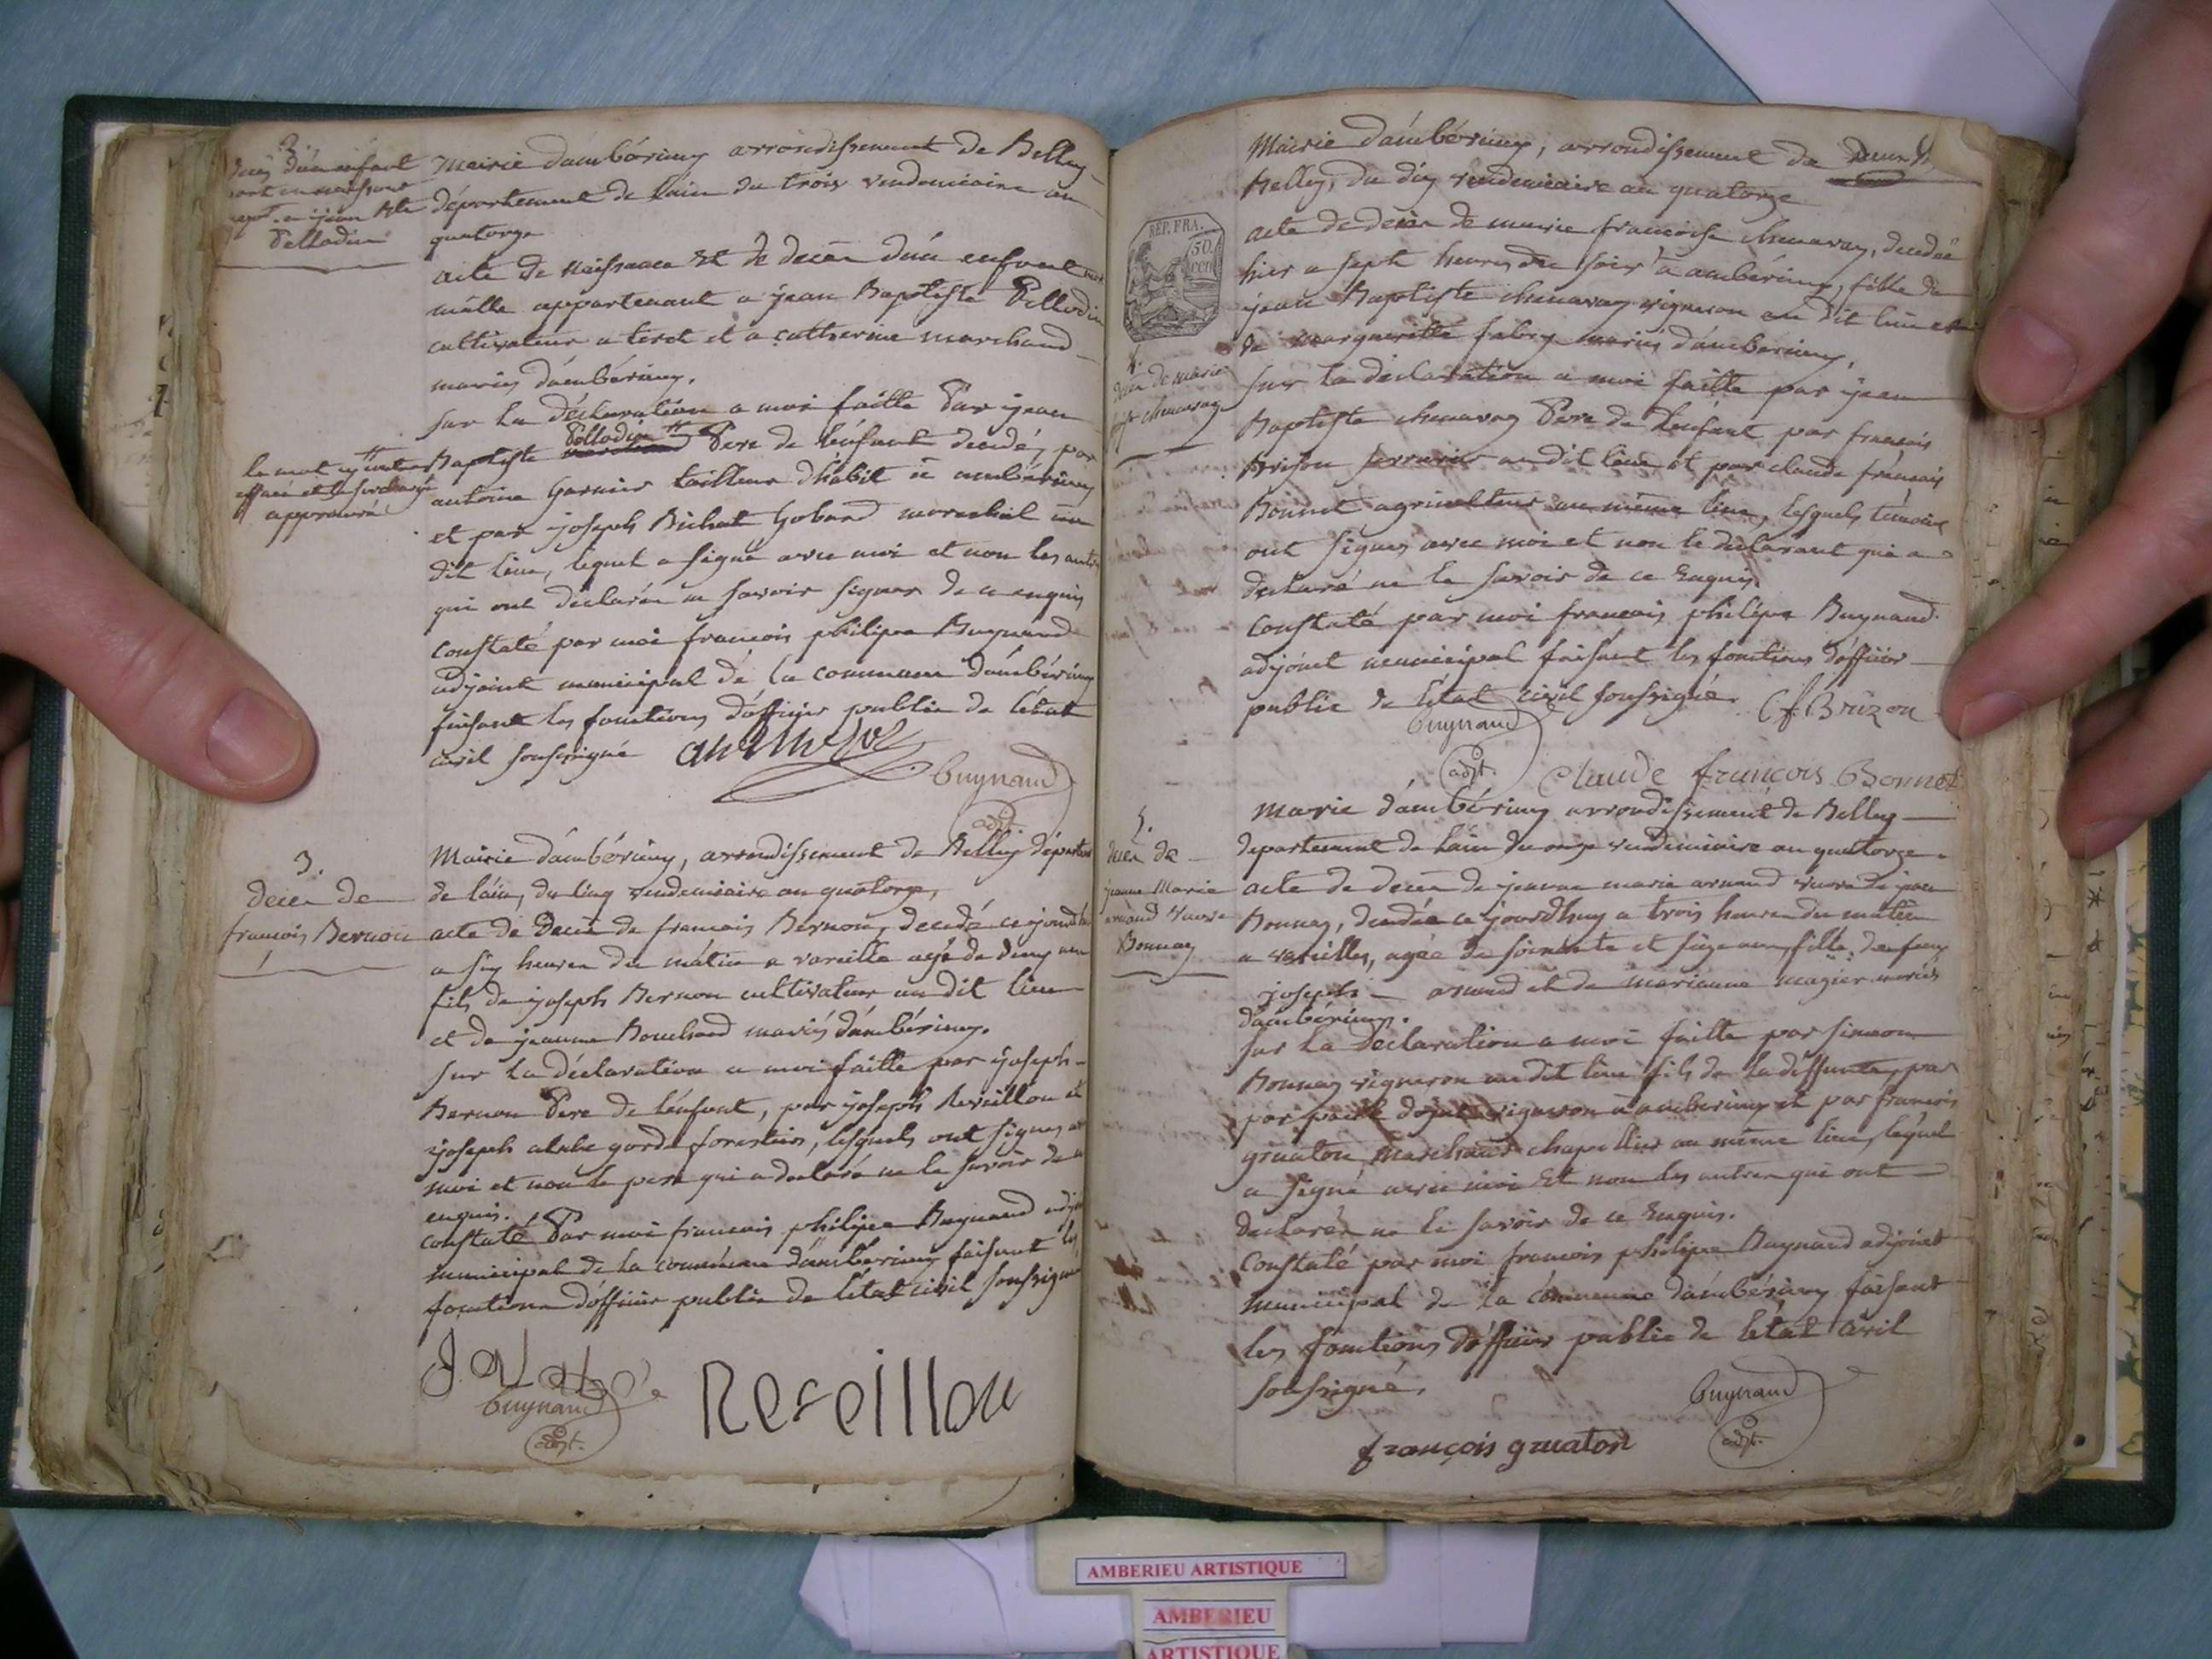 2.
décès d'un enfant
mort en naissant
a jean Bte
Pellodin
Mairie d'ambérieux arrondissement de Belley
département de l'ain du trois vendemiaire an
quatorze
acte de naissance et de décès d'un enfant
mâlle appartenant a jean Baptiste Pellodin
cultivateur a teret et a catherine marchand
mariés d'ambérieux.
sur la déclaration a moi faitte Par jean
Baptiste Pellodin Pere de l'enfant decedé, par
le mot
effacé et la surcharge
approuvé
antoine Garnier tailleur d'habit a ambérieux
et par joseph Bichat Goband marechal au
dit lieu, lequel a signé avec moi et non les autres
qui ont déclarés ne savoir signer de ce enquis
constaté par moi francois philipe Buynand
adjoint municipal de la commune d'ambérieux
faisant les fonctions d'officier public de l'état
civil soussigné
Buynand
adjt.
3.
décès de
francois Bernou
Mairie d'ambérieux, arrondissement de Belley départemt
de l'ain, du cinq vendemiaire an quatorze,
acte de decès de francois Bernou, decedé ce jourd'hui
a six heures du matin a vareille agé de deux ans
fils de joseph Bernou cultivateur au dit lieu
et de jeanne Bouchard mariés d'ambérieux.
sur la déclaration a moi faitte par joseph
Bernou Pere de l'enfant, par joseph Reveillon et
joseph alabe garde forestier, lesquels ont signés avec
moi et non le pere qui a declaré ne le savoir de ce
enquis.
constaté Par moi francois philipe Buynand adjoint
municipal de la commune d'ambérieux faisant les
fonctions d'officier public de l'état civil soussigné
J. alabe
Buynand
adjt.
Reveillon
Mairie d'ambérieux, arrondissement de
Belley, du dix vendemiaire an quatorze
REP. FRA.
50
cen
acte de decès de marie francoise chenavay, decedée
hier a sept heures du soir a ambérieux, fille de
jean Baptiste chenavay vigneron au dit lieu et
de marguerite fabry mariés d'ambérieux.
4.
décès de marie
foise chenavay
sur la declaration a moi faitte par jean
Baptiste chenavay Pere de l'enfant, par francois
Brison serrurier au dit lieu et par claude francois
Bonnet agriculteur au même lieu, lesquels temoins
ont signés avec moi et non le declarant qui a
declaré ne le savoir de ce Enquis.
constaté par moi francois philipe Buynand
adjoint municipal faisant les fonctions d'officier
public de l'état civil soussigné. C f. Brizon
Buynand
adjt. claude françois Bonnet
5.
décès de
jeanne Marie
arnaud veuve
Bonnay
Mairie d'ambérieux arrondissement de Belley
departement de l'ain du onze vendemiaire an quatorze.
acte de decès de jeanne marie arnaud veuve de jean
Bonnay, decedée ce jourd'huy a trois heures du matin
a vareilles, agée de soixante et seize ans, fille de feu
joseph arnaud et de marianne magier mariés
d'ambérieux.
sur la déclaration a moi faitte par simeon
Bonnay vigneron au dit lieu fils de la deffunte, par
vigneron a ambérieux et par francois
gruaton marchand chapellier au même lieu, lequel
a signé avec moi et non les autres qui ont
declarés ne le savoir de ce Enquis.
constaté par moi francois philipe Buynand adjoint
municipal de la commune d'ambérieux faisant
les fonctions d'officier public de l'état civil
soussigné.
Buynand
adjt.
françois gruaton
AMBERIEU ARTISTIQUE
AMBERIEU
ARTISTIQUE